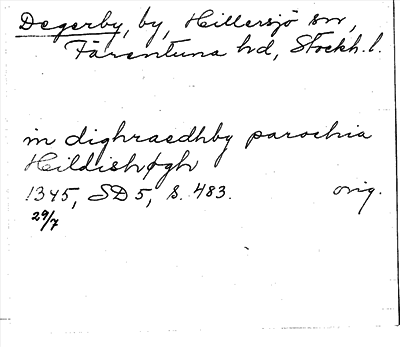 Degerby, by, Hillersjö sn,
Färentuna hd, Stockh. l.
in dighraedhby parochia
Hildishøgh
1345, SD 5, s. 483. orig.
29/7